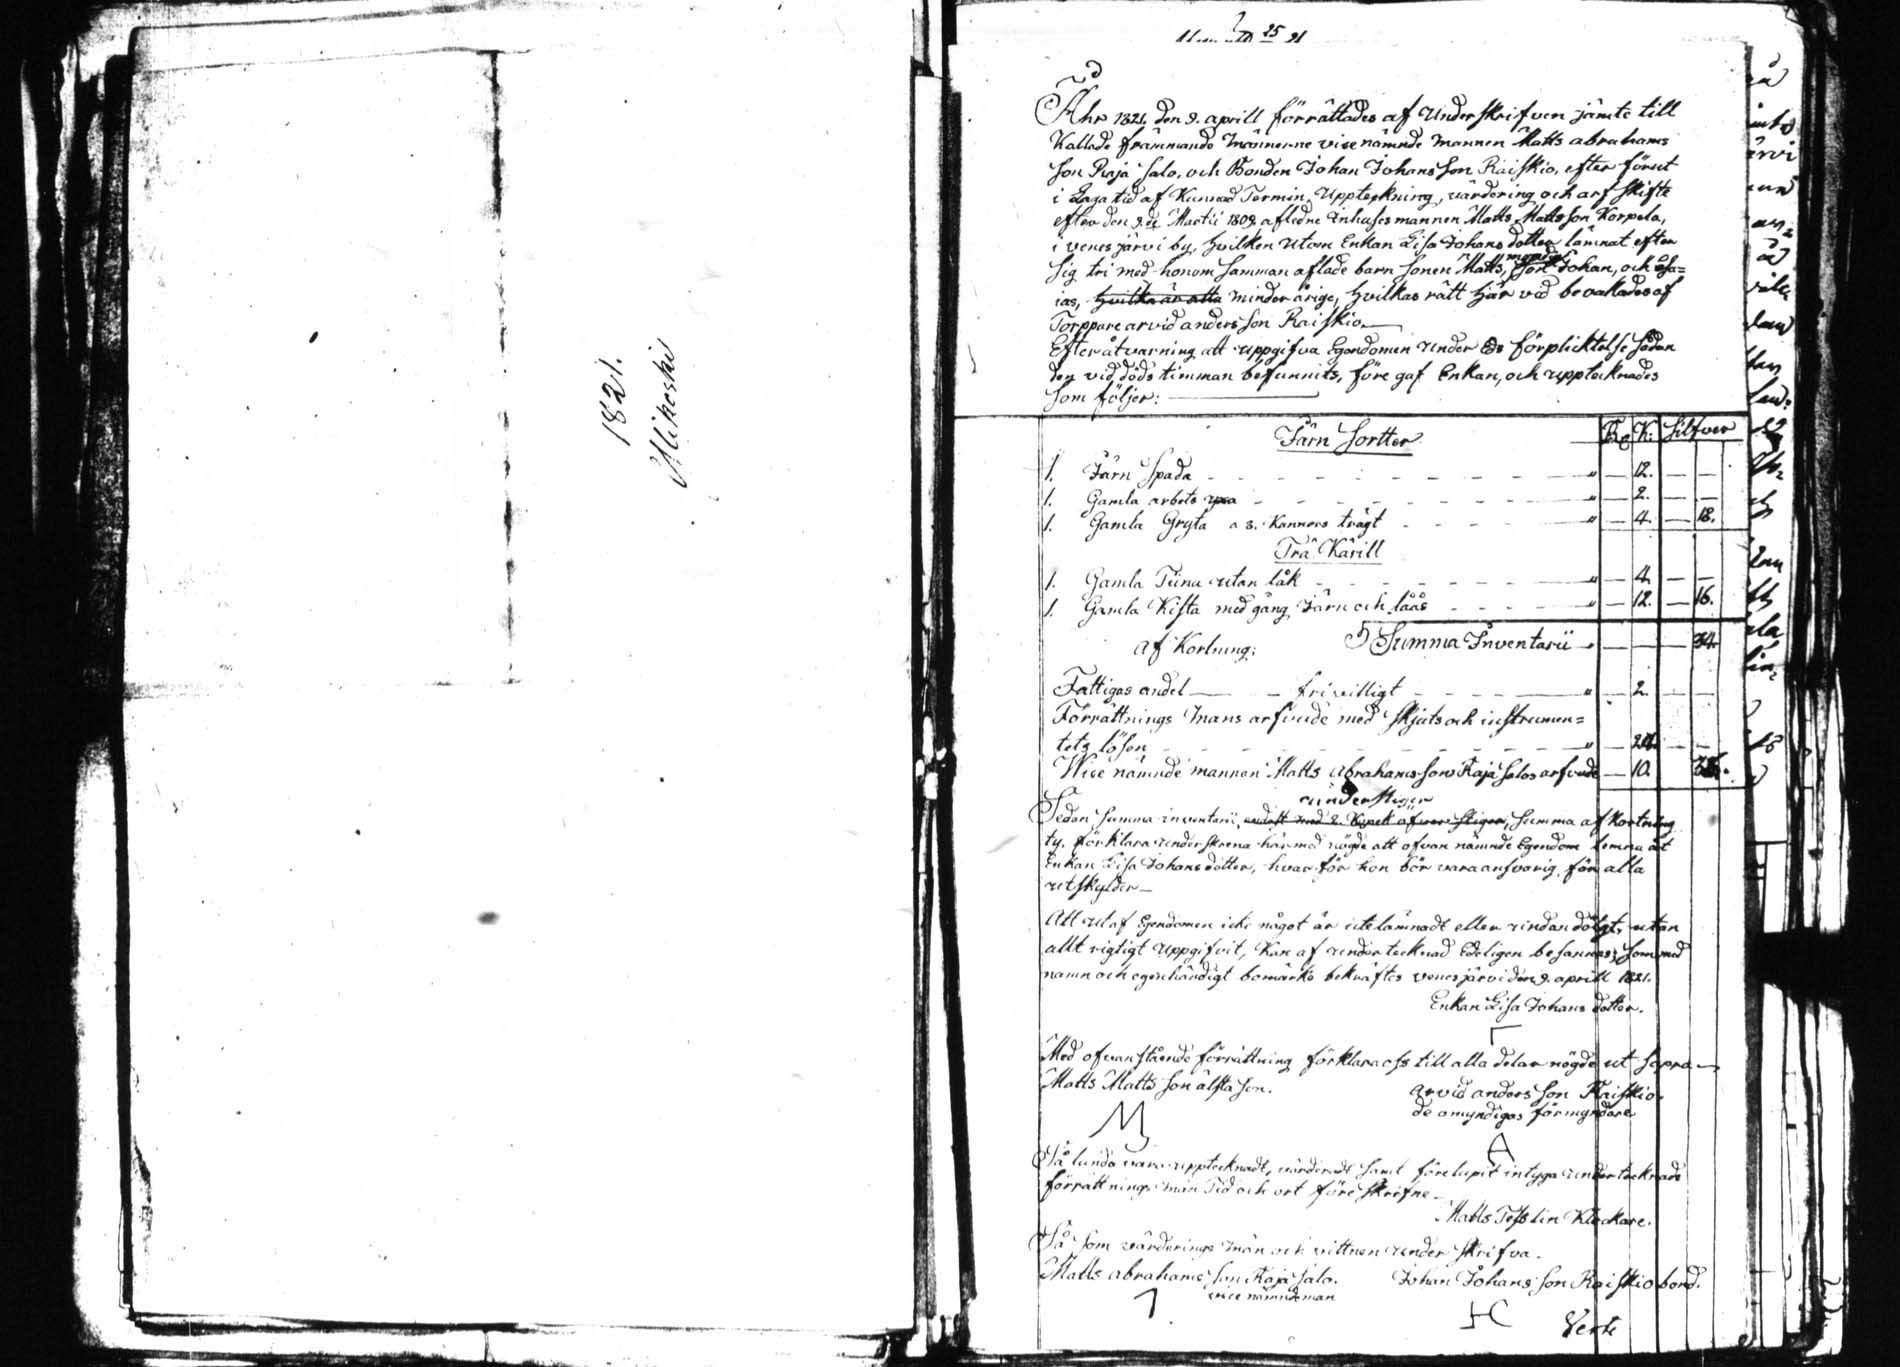 1821.
Mikoski
25
Åhr 1821, den 9. aprill förrättades af Underskrifven jämte till
Kallade främmande männerne vice nämnde mannen Matts abrahams
son Raja salo, och Bonden Johan Johans son Raiskio, efter förut
i Laga tid af Kunnad Termin, Uppteckning, värdering och arf skifte
efter den 9. de Martii 1809 afledne Inhuses mannen Matts Matts son Korpela,
i venes järvi by, Hvilken utom Enkan Lisa Johans dotter lämnat efter
Sig tri med honom samman aflade barn sonen Matts, myndig, Johan, och Esa=
ias, hvilka är alla minder årige, Hvilkas rätt Här vid bevakades af
Torppare arvid anders son Raiskio.
Efter åtvarning att uppgifva Egendomen under Eds förplicktelse sådan
den vid döds timman befunnits, före gaf Enkan, och upptecknades
som följer:
Järn Sortter R. K. Silfver
1. Järn Spada " — 12. — —
1. Gamla arbets yxa " — 2. — —
1. Gamla Gryta a 3. Kannors trägt " — 4. — 18.
Trä Kärill
1. Gamla Tiina utan låk " — 4. — —
1. Gamla Kista med gång Järn och låås " — 12. — 16.
af Kortning: Summa Inventarii " — — — 34.
Fattigas andel — frivilligt " — 2. — —
Förrättnings Mans arfvude med skjuts och instrumen=
tets lösen " — 24. — —
Wice nämnde mannen Matts Abrahams son Raja Salos arfvude — 10. 36.
understiger
Sedan Summa inventarii, endast med 2. Kopek öfver stiger, Summa af Kortning
ty. förklara underskrena härmed nögde att ofvan nämnde Egendom lemna åt
Enkan Lisa Johans dotter, hvar för hon bör vara ansvarig för alla
utskylder —
Att utaf Egendomen icke något är utelämnadt eller undandölgt, utan
allt rigtigt uppgifvit, Kan af undertecknad Edeligen besannas; som med
namn och egenhändigt bomärke bekräftes venes järvi den 9. aprill 1821.
Enkan Lisa Johans dotter.
Med ofvanstående förrättning förklara oss till alla delar nögde ut supra —
Matts Matts son älsta son. Arvid anders son Raiskio.
de omyndigas förmyndare
M A
Så lunda vara upptecknadt, värderadt samt förelupit intyga undertecknade
förrättnings män Tid och ort före skrefne —
Matts Tesslin Klockare.
Så som värderings män och vittnen under skrifva.
Matts abrahams son Raja salo. Johan Johans son Raiskio bond.
vice nämndeman
Verte